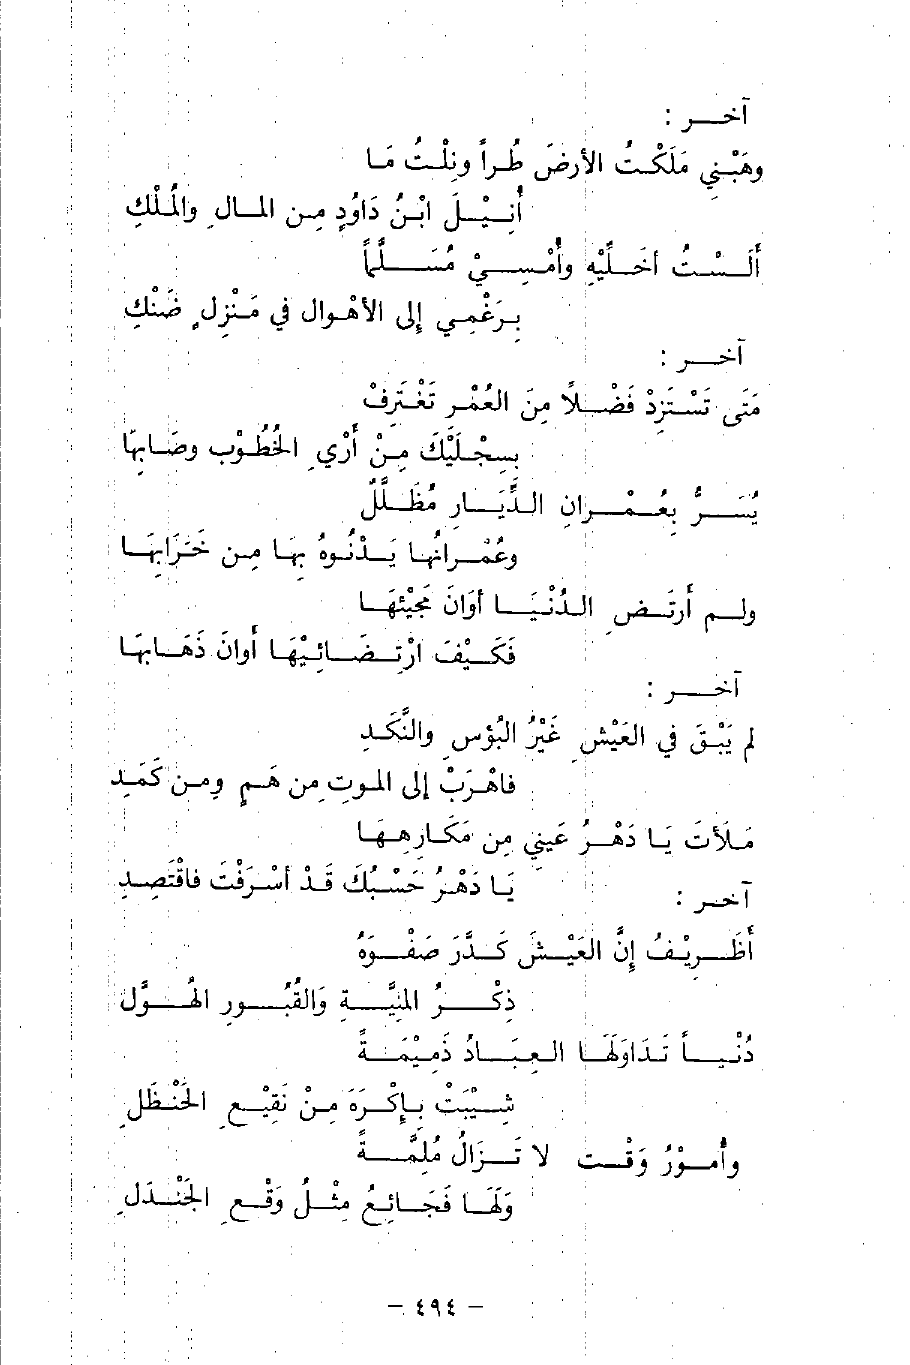 آخر :
وهَبْنِي مَلَكْتُ الأرضَ طُراً ونِلْتُ مَا
أُنِيْلَ ابْنُ دَاوُدٍ مِن المالِ والمُلْكِ
أَلَسْتُ أخَلِّيْهِ وأُمْسِيْ مُسَلَّماً
بِرَغْمِي إلى الأهْوالِ في مَنْزِلٍ ضَنْكِ
آخر :
مَتَى تَسْتَزِدْ فَضْلاً مِنَ العُمْرِ تَغْتَرِفْ
بِسِجْلَيْكَ مِنْ أرْيِ الخُطُوْبِ وصَابِهَا
يُسَرُّ بِعُمْرانِ الدِّيَارِ مُظَلَّلٌ
وعُمْرانُها يَدْنُوهُ بِهَا مِن خَرَابِهَا
ولم أَرتَضِ الدُنْيَا أوَانَ مَجِيْئِهَا
فَكَيْفَ ارْتِضَائِيْهَا أوانَ ذَهَابِهَا
آخر :
لم يَبْقَ في العَيْشِ غَيْرُ البُؤسِ والنَّكَدِ
فاهْرَبْ إلى الموتِ مِن هَمٍ ومِن كَمَدِ
مَلأتَ يَا دَهْرُ عَيني مِن مَكَارِهِهَا
يَا دَهْرُ حَسْبُكَ قَدْ أسْرَفْتَ فاقْتَصِدِ
آخر :
أظَرِيْفُ إنَّ العَيْشَ كَدَّرَ صَفْوَهُ
ذِكْرُ المنِيَّةِ وَالقُبُورِ الهُوَّلِ
دُنْياً تَدَاوَلَهَا العِبَادُ ذَمِيْمَةً
شِيْبَتْ بِإكْرَهَ مِنْ نَقِيْعِ الحَنْظَلِ
وأُمورُ وَقْتٍ لا تَزالُ مُلِمَّةً
وَلَهَا فَجَائِعُ مِثْلُ وَقْعِ الجَنْدَلِ
- ٤٩٤ -